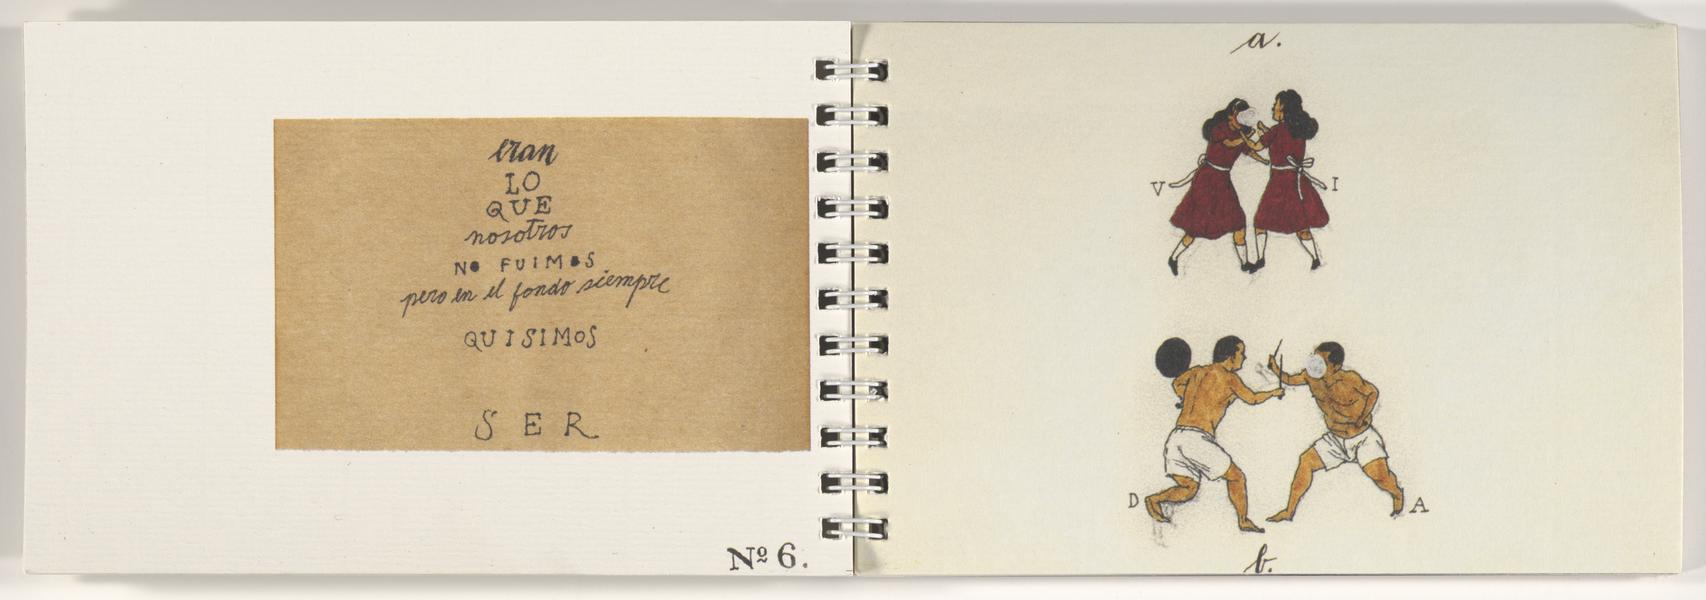 eran
LO
QUE
nosotros
NO FUIMOS
pero en el fondo siempre
QUISIMOS
SER
Nº 6.
a.
V I
D A
b.